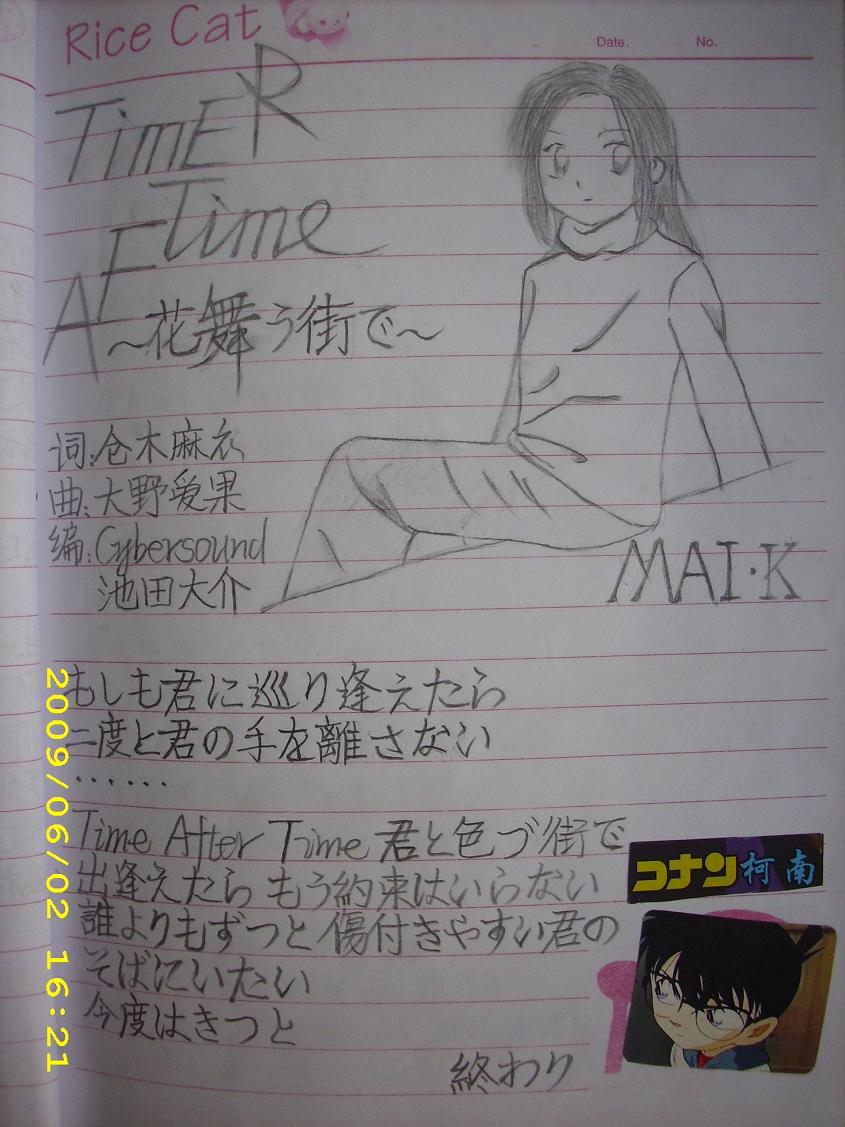 Rice Cat
Date. No.
TimE AFTER Time
～花舞う街で～
词:仓木麻衣
曲:大野爱果
编:Cybersound
池田大介
MAI·K
もしも君に巡り逢えたら
二度と君の手を離さない
……
Time After Time 君と色づ街で
出逢えたら もう約束はいらない
誰よりもずっと傷付きやすい君の
そばにいたい
今度はきっと
終わり
コナン柯南
2009/06/02 16:21